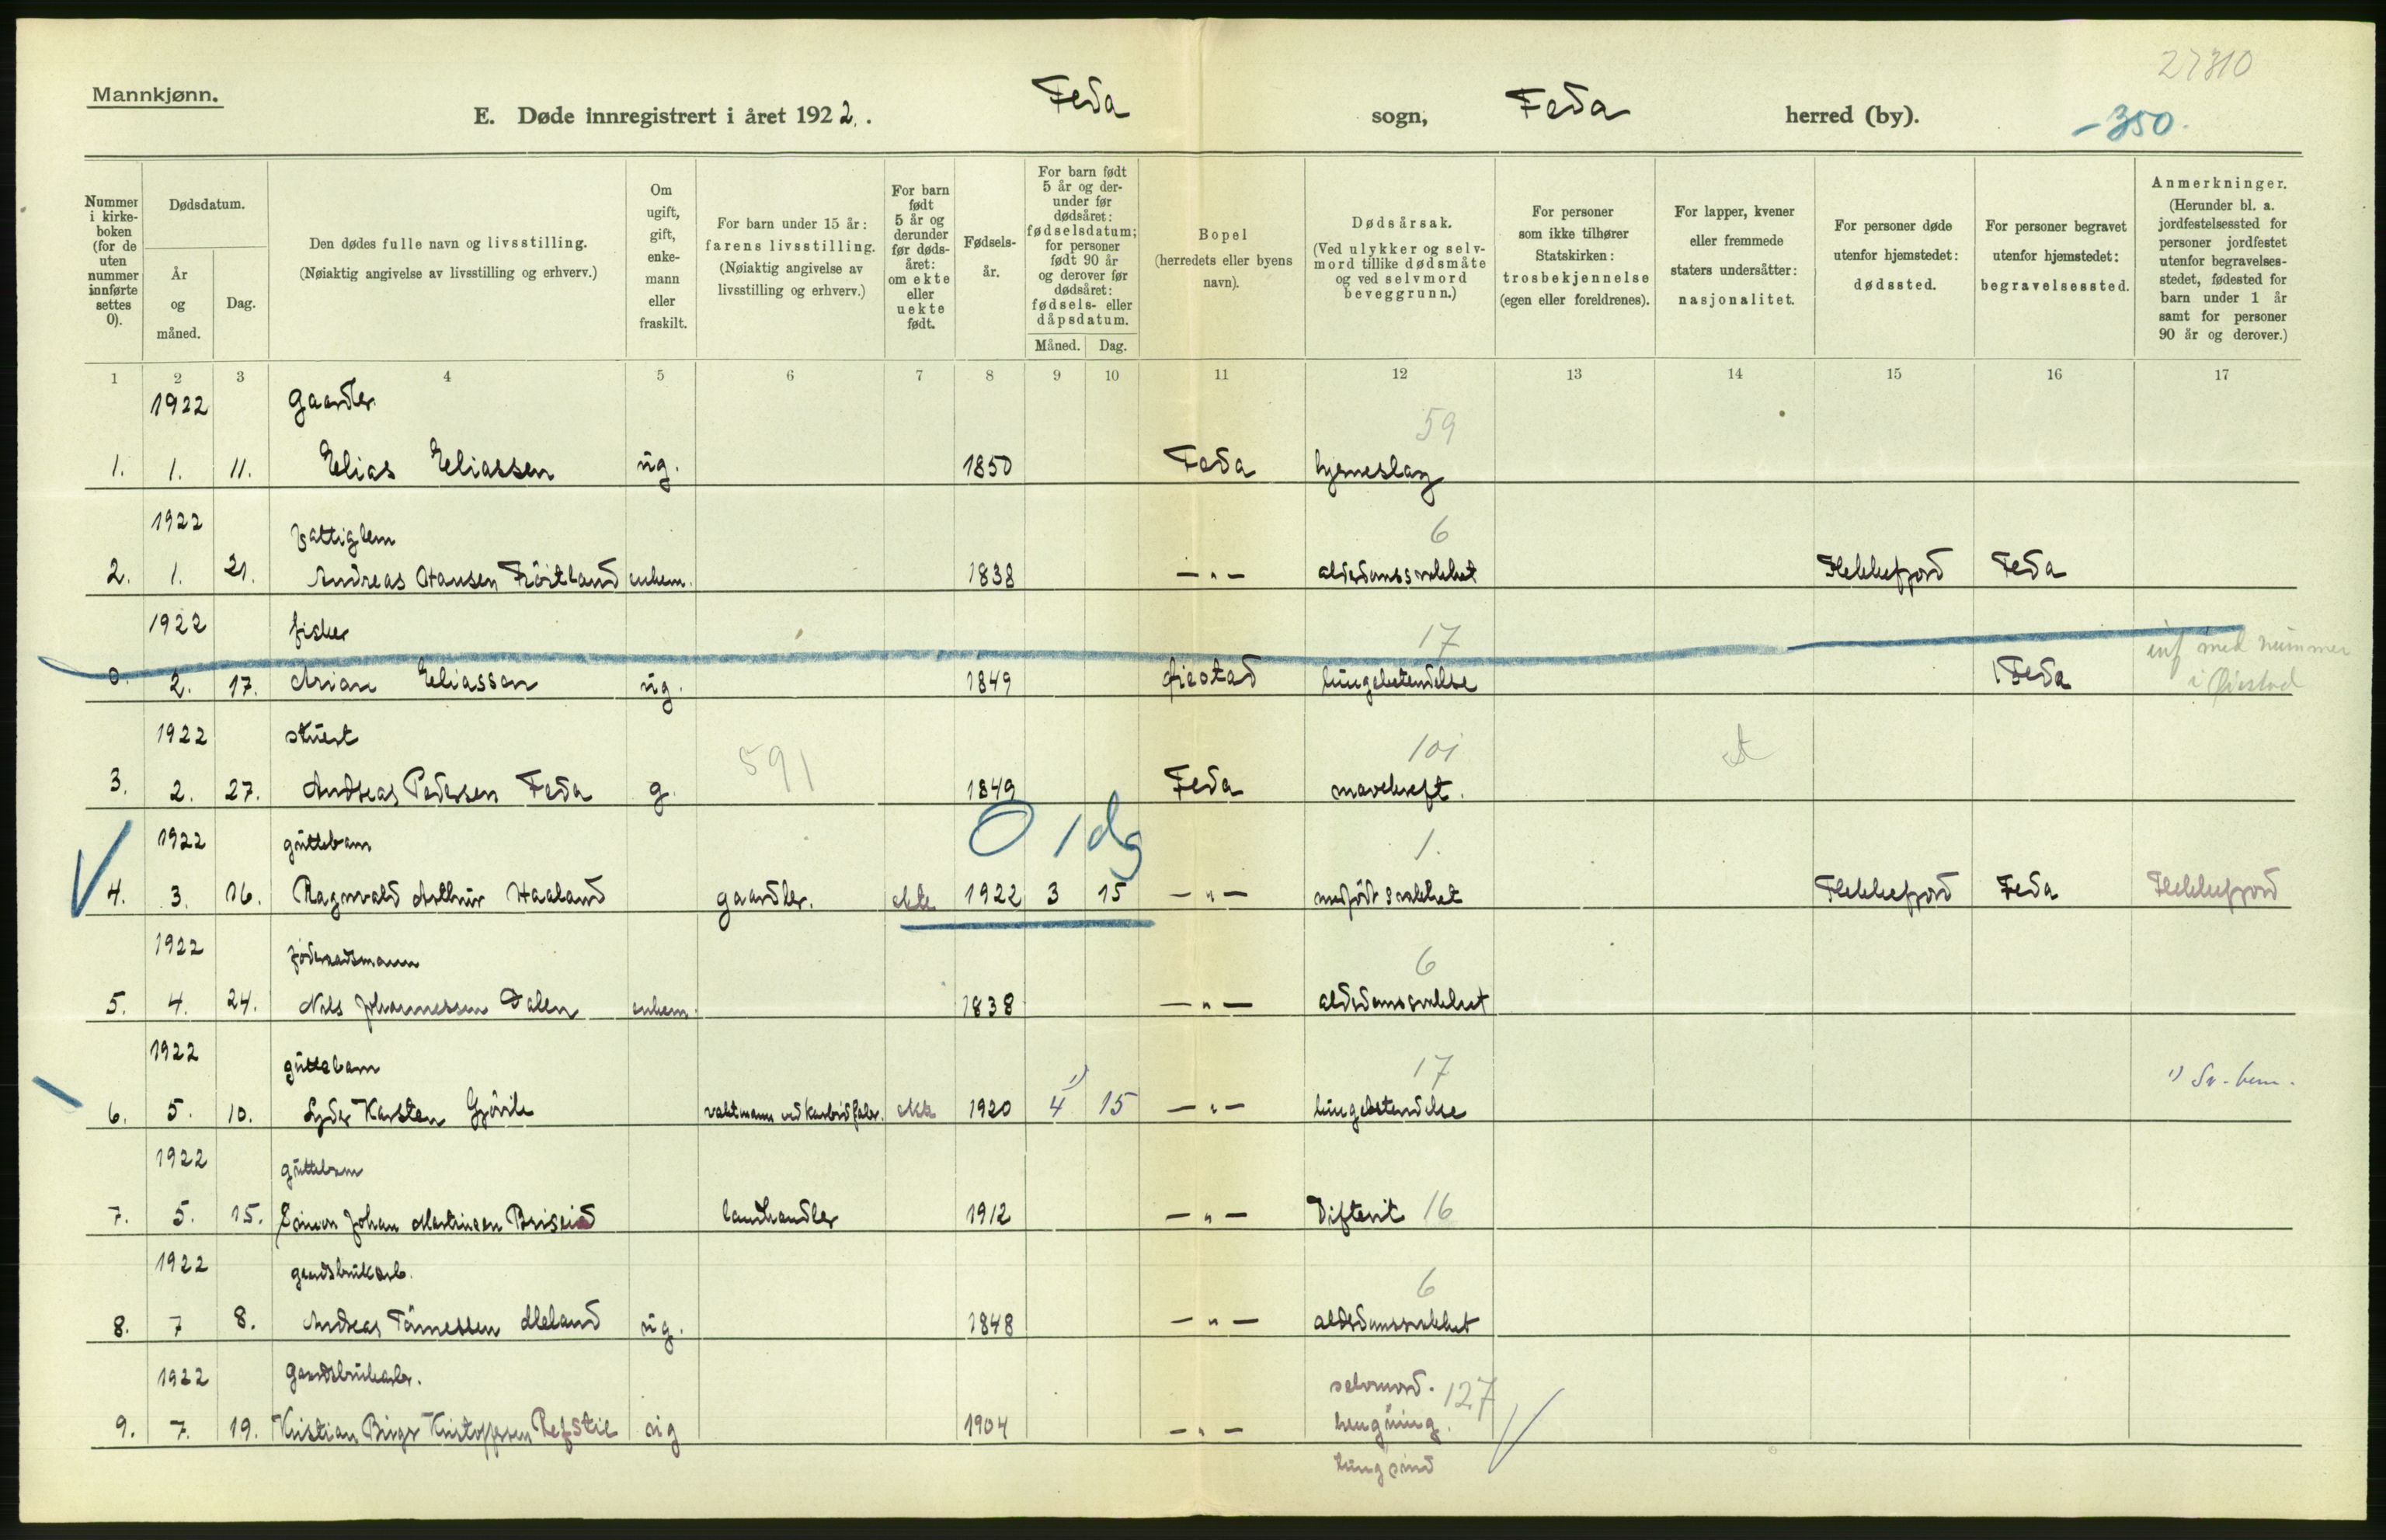 27310
Mannkjønn.
E. Døde innregistrert i året 1922. Feda sogn, Feda herred (by).
-350.
Nummer i kirke-boken (for de uten nummer innførte settes 0).
Dødsdatum.
År og måned.
Dag.
Den dødes fulle navn og livsstilling.
(Nøiaktig angivelse av livsstilling og erhverv.)
Om ugift, gift, enke-mann eller fraskilt.
For barn under 15 år:
farens livsstilling.
(Nøiaktig angivelse av livsstilling og erhverv.)
For barn født 5 år og derunder før døds-året: om ekte eller uekte født.
Fødsels-år.
For barn født 5 år og der-under før dødsåret: fødselsdatum; for personer født 90 år og derover før dødsåret: fødsels- eller dåpsdatum.
Måned. Dag.
Bopel
(herredets eller byens navn).
Dødsårsak.
(Ved ulykker og selv-mord tillike dødsmåte og ved selvmord beveggrunn.)
For personer som ikke tilhører Statskirken: trosbekjennelse (egen eller foreldrenes).
For lapper, kvener eller fremmede staters undersåtter: nasjonalitet.
For personer døde utenfor hjemstedet: dødssted.
For personer begravet utenfor hjemstedet: begravelsessted.
Anmerkninger.
(Herunder bl. a. jordfestelsessted for personer jordfestet utenfor begravelses-stedet, fødested for barn under 1 år samt for personer 90 år og derover.)
1 2 3 4 5 6 7 8 9 10 11 12 13 14 15 16 17
1922 59
1. 1. 11. Elias Eliassen ug. 1850 Feda
1922 fattiglem 6
2. 1. 21. Andreas Hansen Fröitland enkem. 1838 —"— alderdomssvakhet Flekkefjord Feda
1922 fisker 17 inf med nummer
0. 2. 17. Eliassen ug. 1849 lungebetendelse Feda i
1922 stuert 101
3. 2. 27. Andreas Pedersen Feda g. 591 1849 Feda mavekreft.
0 1 dg
1922 guttebarn 1.
4. 3. 16. Ragnvald Arthur Haaland gaardbr. ekte 1922 3 15 —"— medfödt svakhet Flekkefjord Feda Flekkefjord
1922 föderaadsmann 6
5. 4. 24. Nils Johannessen Dalen enkem. 1838 —"— alderdomssvakhet
1922 guttebarn 17 1)
6. 5. 10. Karsten vaktmann ved karbidfabr. ekte 1920 4 15 —"— lungebetendelse
1922 guttebarn
7. 5. 15. Johan Briseid landhandler 1912 —"— Difterit 16
1922 gaardsbrukarb. 6
8. 7 8. Andreas Tönnessen ug. 1848 —"— alderdomssvakhet
1922 Gaardsbrukarb. selvmord. 127
9. 7. 19. Kristian Birger Kristoffersen Refstie ug 1904 —"— hengning.
tungsind